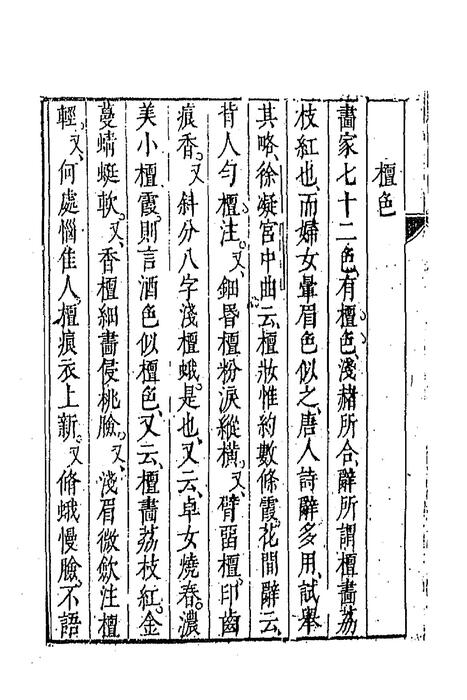 檀色
畵家七十二色、有檀色、淺赭所合、辭所謂檀畵荔
枝紅也、而婦女暈眉色似之、唐人詩辭多用、試舉
其略、徐凝宮中曲云、檀妝惟約數條霞。花間辭云、
背人勻檀注。又、鈿昬檀粉淚縱橫。又、臂畱檀印齒
痕香。又斜分八字淺檀蛾。是也、又云、卓女燒春。濃
美小檀霞。則言酒色似檀色、又云、檀畵荔枝紅。金
蔓蜻蜓軟。又、香檀細畵侵桃臉。又、淺眉微斂注檀
輕。又、何處惱佳人。檀痕衣上新。又、脩蛾慢臉。不語